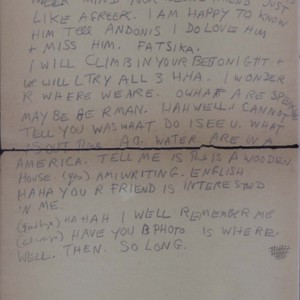 MIND YOUR JUST
LIKE A GREEK. I AM HAPPY TO KNOW
HIM TELL ANDONIS I DO LOVE HIM
+ MISS HIM. FATSIKA.
I WILL CLIMB IN YOUR BED TONIGHT +
WE WILL TRY ALL 3 HHA. I WONDER
R WHERE WE ARE. OWHAT A RE
MAY BE GE RMAN. HAHWELL I CANNOT
TELL YOU WAS WHAT DO I SEE U. WHAT
IS OUT WATER ARE IN A
AMERICA. TELL ME IS THIS A WOODEN
HOUSE. (you) AM I WRITING. ENGLISH
HAHA YOU R FRIEND IS INTERESTED
IN ME.
HAHAH I WELL REMEMBER ME
(always) HAVE YOU A PHOTO IS WHERE.
WELL. THEN. SO LONG.